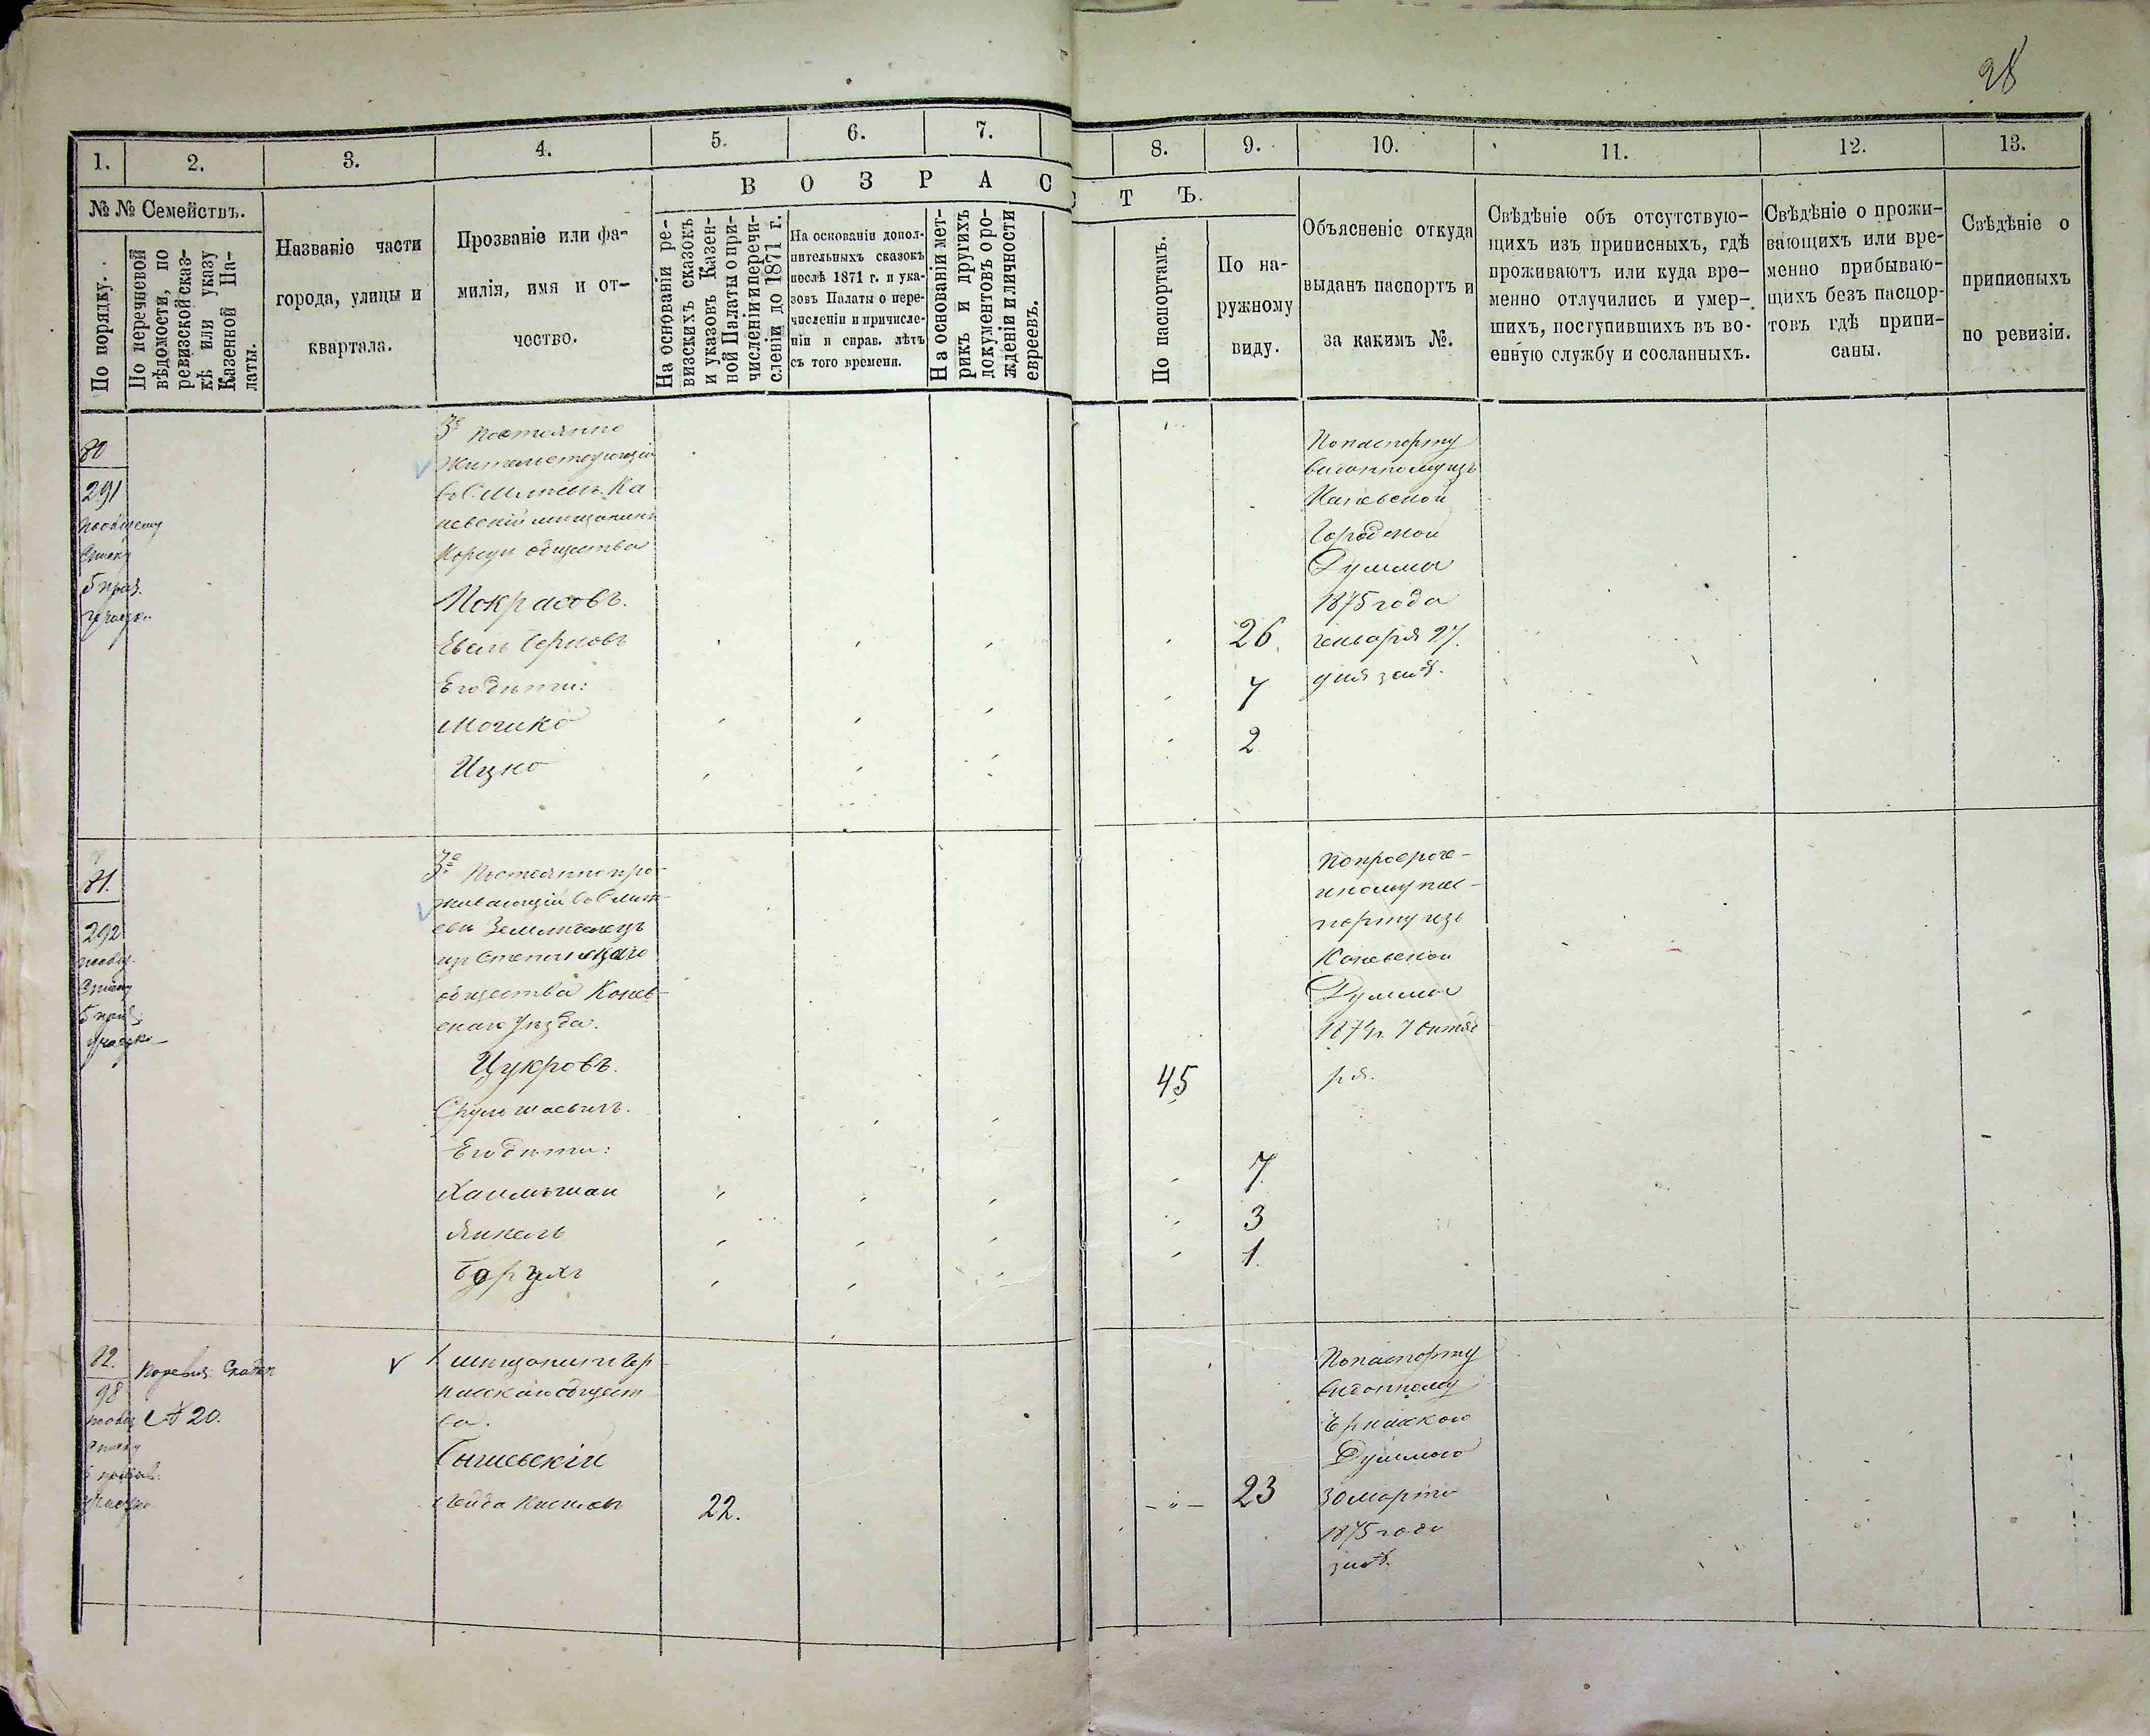 28
1. 2. 3. 4. 5. 6. 7. 8. 9. 10. 11. 12. 13.
В О З Р А С Т Ъ.
№ № Семействъ.
По порядку.
По перечневой
вѣдомости, по
ревизской сказ-
кѣ или указу
Казенной Па-
латы.
Названіе части
города, улицы и
квартала.
Прозваніе или фа-
милія, имя и от-
чество.
На основаніи ре-
визскихъ сказокъ
и указовъ Казен-
ной Палаты о при-
численіи и перечи-
сленіи до 1871 г.
На основаніи допол-
нительныхъ сказокъ
послѣ 1871 г. и ука-
зовъ Палаты о пере-
численіи и причисле-
ніи и справ. лѣтъ
съ того времени.
На основаніи мет-
рикъ и другихъ
документовъ о ро-
жденіи и личности
евреевъ.
По паспортамъ.
По на-
ружному
виду.
Объясненіе откуда
выданъ паспортъ и
за какимъ №.
Свѣдѣніе объ отсутствую-
щихъ изъ приписныхъ, гдѣ
проживаютъ или куда вре-
менно отлучились и умер-
шихъ, поступившихъ въ во-
енную службу и сосланныхъ.
Свѣдѣніе о прожи-
вающихъ или вре-
менно прибываю-
щихъ безъ паспор-
товъ гдѣ припи-
саны.
Свѣдѣніе о
приписныхъ
по ревизіи.
80
291
пообщему
списку
5 приз.
участк.
3е Постоянно
жительствующій
в С. Ка
невскій мищанинъ
Корсун общества
Покрасовъ.
Его дѣти:
Мошко
Ицко
26.
7
2
По паспорту
виданному изъ
Каневской
Городской
Думы
1875 года
генваря 27.
дня за №.
81.
292
пообщ.
списку
5 приз.
участка
3е Постоянно про-
живающій в Смит-
еви Землидѣлецъ
из Степанецкаго
общества Канев-
скаго Уѣзда.
Цукровъ.
Срулъ Шаевичъ.
Его дѣти:
Янкель
Борухъ
45
7
3
1
По просроче-
ному пас-
порту изъ
Каневской
Думы
1874г. 7 Октяб
ря.
82.
98
пообщ
списку
5 приз.
участка
По ревиз. Сказки
№ 20.
1 мищанинъ Чер
каскаго общест
ва.
22.
23
По паспорту
виданному
Думою
30 марта
1875 года
за №.